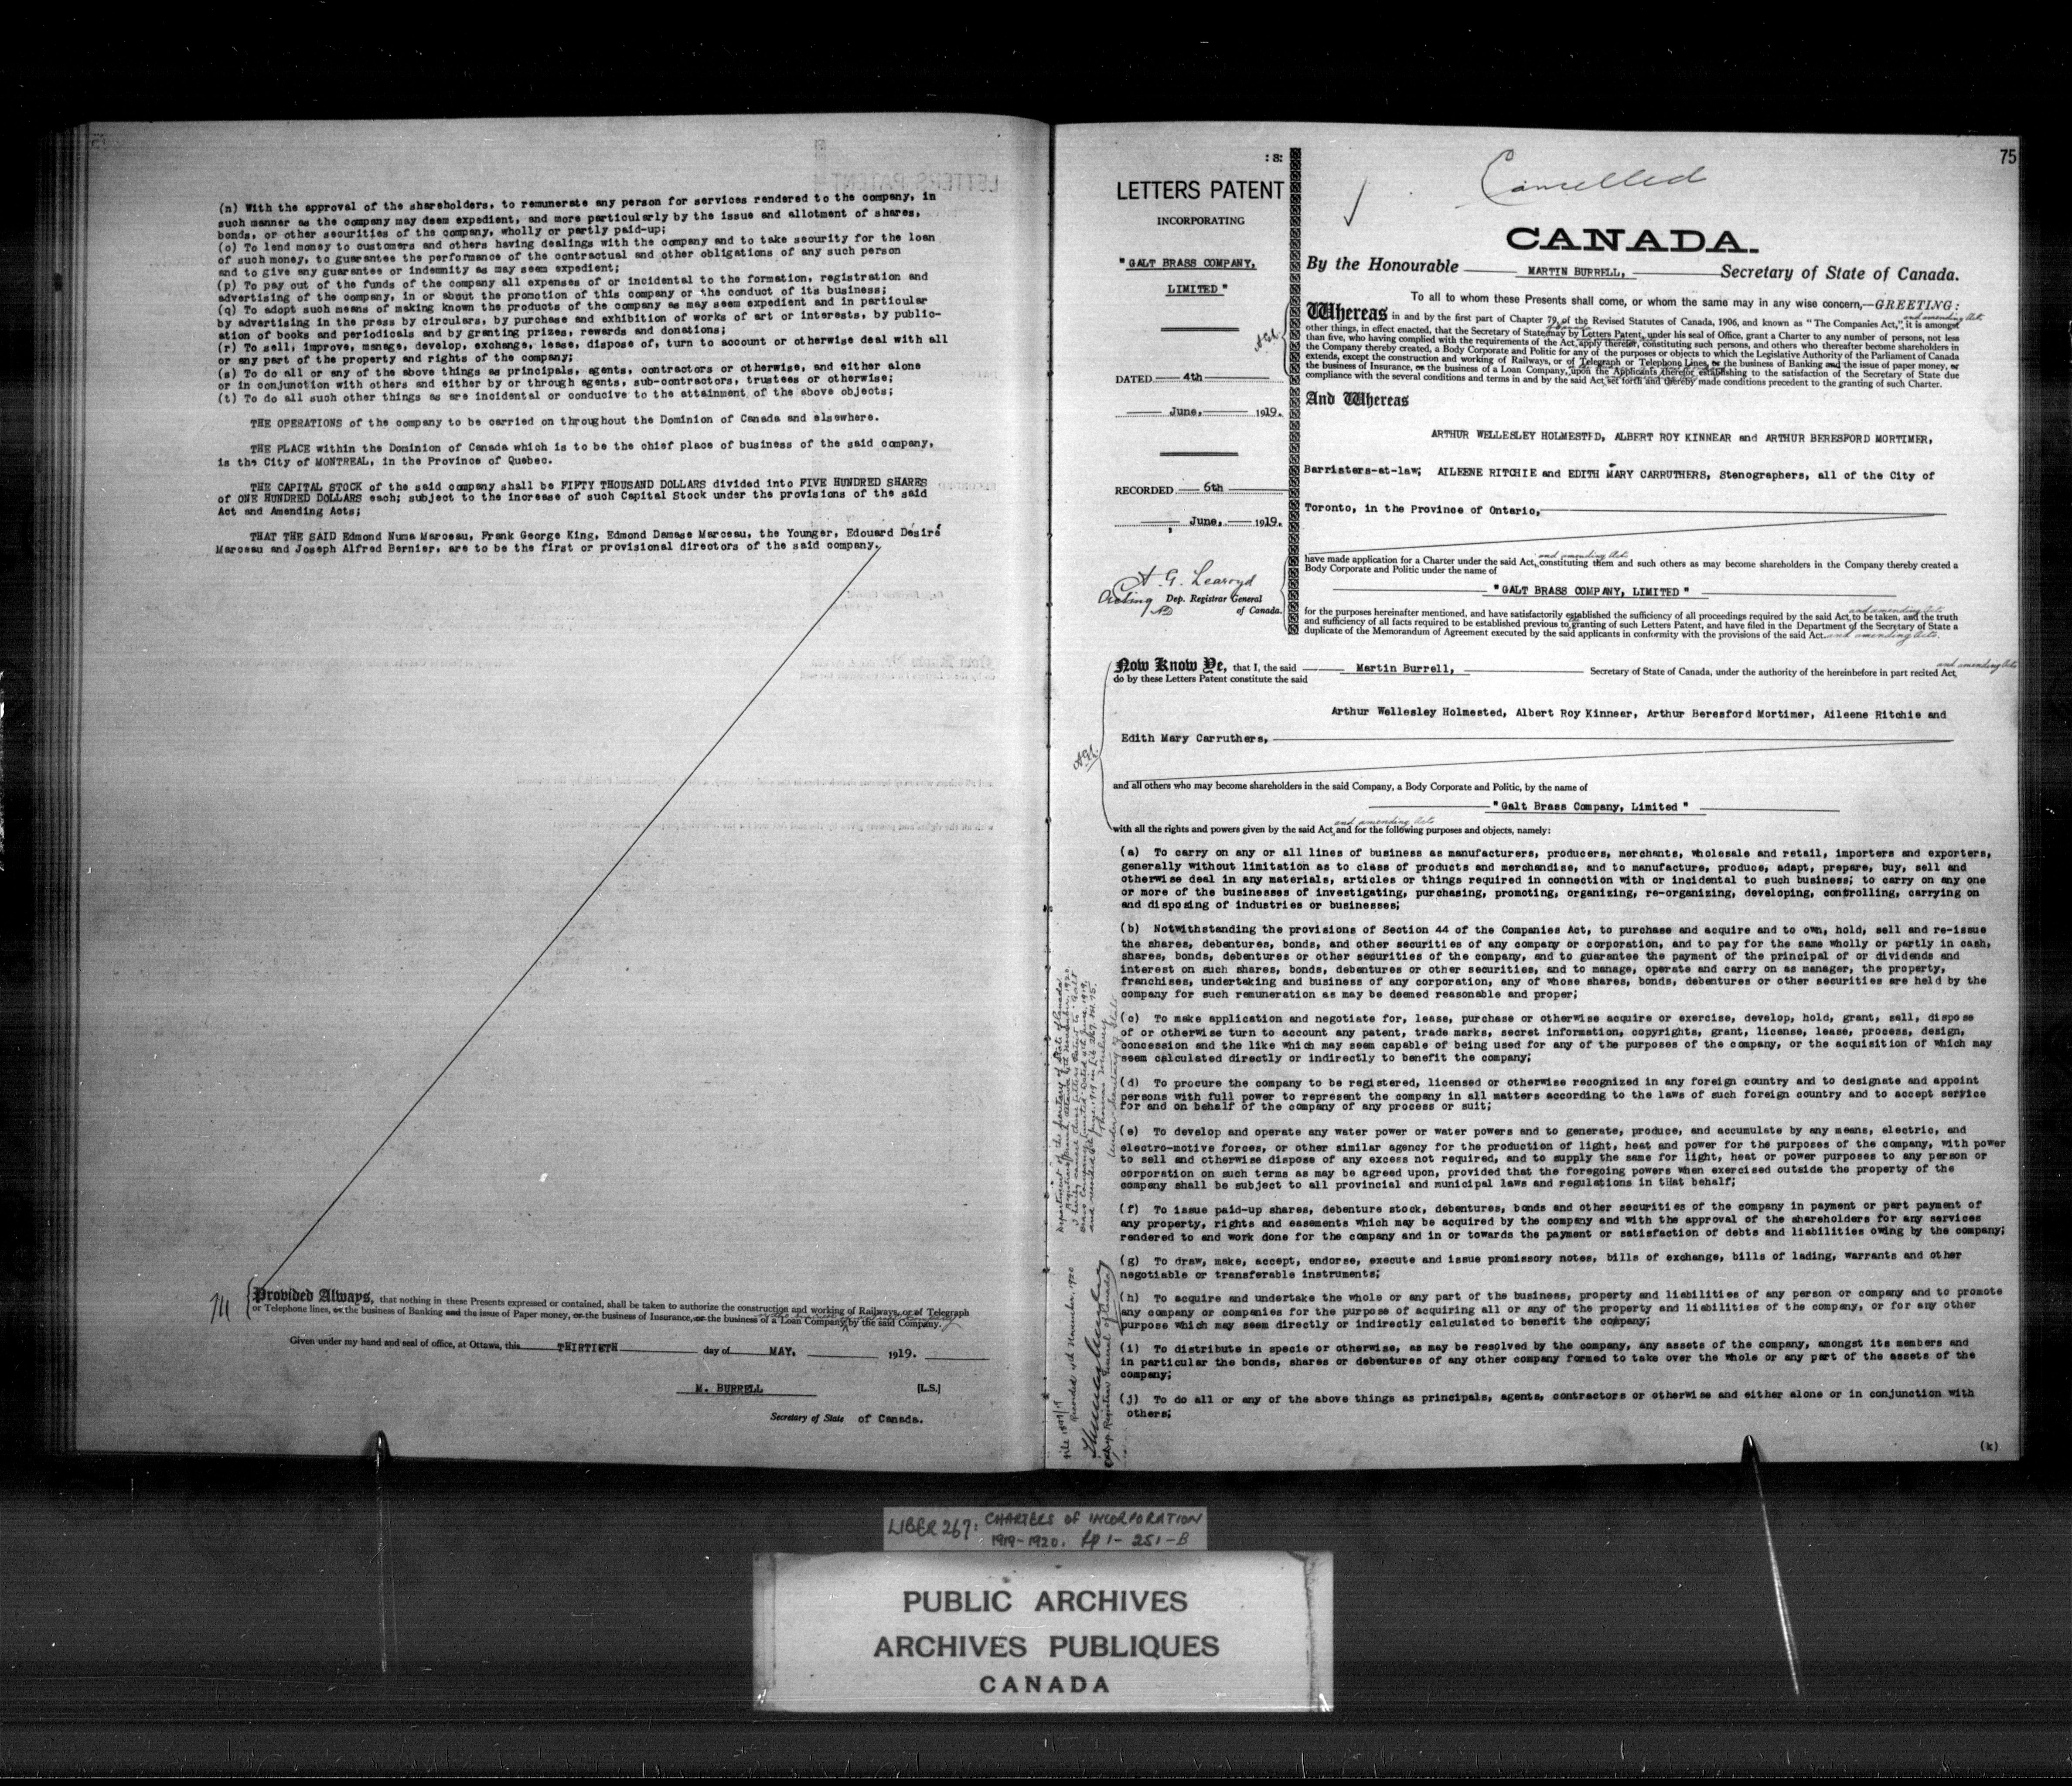 (n) With the approval of the shareholders, to remunerate any person for services rendered to the company, in
such manner as the company may deem expedient, and more particularly by the issue and allotment of shares,
bonds, or other securities of the company, wholly or partly paid-up;
(o) To lend money to customers and others having dealings with the company and to take security for the loan
of such money, to guarantee the performance of the contractual and other obligations of any such person
and to give any guarantee or indemnity as may seem expedient;
(p) To pay out of the funds of the company all expenses of or incidental to the formation, registration and
advertising of the company, in or about the promotion of this company or the conduct of its business;
(q) To adopt such means of making known the products of the company as may seem expedient and in particular
by advertising in the press by circulars, by purchase and exhibition of works of art or interests, by public-
ation of books and periodicals and by granting prizes, rewards and donations;
(r) To sell, improve, manage, develop, exchange, lease, dispose of, turn to account or otherwise deal with all
or any part of the property and rights of the company;
(s) To do all or any of the above things as principals, agents, contractors or otherwise, and either alone
or in conjunction with others and either by or through agents, sub-contractors, trustees or otherwise;
(t) To do all such other things as are incidental or conducive to the attainment of the above objects;
THE OPERATIONS of the company to be carried on throughout the Dominion of Canada and elsewhere.
THE PLACE within the Dominion of Canada which is to be the chief place of business of the said company,
is the City of MONTREAL, in the Province of Quebec.
THE CAPITAL STOCK of the said company shall be FIFTY THOUSAND DOLLARS divided into FIVE HUNDRED SHARES
of ONE HUNDRED DOLLARS each; subject to the increase of such Capital Stock under the provisions of the said
Act and Amending Acts;
THAT THE SAID Edmond Numa Marceau, Frank George King, Edmond Damase Marceau, the Younger, Edouard Désiré
Marceau and Joseph Alfred Bernier, are to be the first or provisional directors of the said company.
Provided Always, that nothing in these Presents expressed or contained, shall be taken to authorize the construction and working of Railways, or of Telegraph
or Telephone lines, or the business of Banking and the issue of Paper money, or the business of Insurance, or the business of a Loan Company by the said Company.
Given under my hand and seal of office, at Ottawa, this THIRTIETH day of MAY, 1919.
M. BURRELL [L.S.]
Secretary of State of Canada.
75
: S:
LETTERS PATENT
INCORPORATING
" GALT BRASS COMPANY,
LIMITED "
DATED 4th
June, 1919.
RECORDED 6th
June, 1919.
A. G. Learoyd
Acting Dep. Registrar General
of Canada.
Cancelled
CANADA.
By the Honourable MARTIN BURRELL, Secretary of State of Canada.
To all to whom these Presents shall come, or whom the same may in any wise concern,—GREETING:
and amending Act
Whereas in and by the first part of Chapter 79, of the Revised Statutes of Canada, 1906, and known as "The Companies Act," it is amongst
other things, in effect enacted, that the Secretary of State may by Letters Patent, under his seal of Office, grant a Charter to any number of persons, not less
than five, who having complied with the requirements of the Act, apply therefor, constituting such persons, and others who thereafter become shareholders in
the Company thereby created, a Body Corporate and Politic for any of the purposes or objects to which the Legislative Authority of the Parliament of Canada
extends, except the construction and working of Railways, or of Telegraph or Telephone Lines, or the business of Banking and the issue of paper money, or
the business of Insurance, or the business of a Loan Company, upon the Applicants therefor establishing to the satisfaction of the Secretary of State due
compliance with the several conditions and terms in and by the said Act set forth and thereby made conditions precedent to the granting of such Charter.
And Whereas
ARTHUR WELLESLEY HOLMESTED, ALBERT ROY KINNEAR and ARTHUR BERESFORD MORTIMER,
Barristers-at-law; AILEENE RITCHIE and EDITH MARY CARRUTHERS, Stenographers, all of the City of
Toronto, in the Province of Ontario,
and amending Acts
have made application for a Charter under the said Act, constituting them and such others as may become shareholders in the Company thereby created a
Body Corporate and Politic under the name of
" GALT BRASS COMPANY, LIMITED "
and amending Acts
for the purposes hereinafter mentioned, and have satisfactorily established the sufficiency of all proceedings required by the said Act to be taken, and the truth
and sufficiency of all facts required to be established previous to granting of such Letters Patent, and have filed in the Department of the Secretary of State a
duplicate of the Memorandum of Agreement executed by the said applicants in conformity with the provisions of the said Act and amending Acts.
and amending Acts
Now Know Ye, that I, the said Martin Burrell, Secretary of State of Canada, under the authority of the hereinbefore in part recited Act,
do by these Letters Patent constitute the said
Arthur Wellesley Holmested, Albert Roy Kinnear, Arthur Beresford Mortimer, Aileene Ritchie and
Edith Mary Carruthers,
and all others who may become shareholders in the said Company, a Body Corporate and Politic, by the name of
" Galt Brass Company, Limited "
and amending Acts
with all the rights and powers given by the said Act, and for the following purposes and objects, namely:
(a) To carry on any or all lines of business as manufacturers, producers, merchants, wholesale and retail, importers and exporters,
generally without limitation as to class of products and merchandise, and to manufacture, produce, adapt, prepare, buy, sell and
otherwise deal in any materials, articles or things required in connection with or incidental to such business; to carry on any one
or more of the businesses of investigating, purchasing, promoting, organizing, re-organizing, developing, controlling, carrying on
and disposing of industries or businesses;
(b) Notwithstanding the provisions of Section 44 of the Companies Act, to purchase and acquire and to own, hold, sell and re-issue
the shares, debentures, bonds, and other securities of any company or corporation, and to pay for the same wholly or partly in cash,
shares, bonds, debentures or other securities of the company, and to guarantee the payment of the principal of or dividends and
interest on such shares, bonds, debentures or other securities, and to manage, operate and carry on as manager, the property,
franchises, undertaking and business of any corporation, any of whose shares, bonds, debentures or other securities are held by the
company for such remuneration as may be deemed reasonable and proper;
(c) To make application and negotiate for, lease, purchase or otherwise acquire or exercise, develop, hold, grant, sell, dispose
of or otherwise turn to account any patent, trade marks, secret information, copyrights, grant, license, lease, process, design,
concession and the like which may seem capable of being used for any of the purposes of the company, or the acquisition of which may
seem calculated directly or indirectly to benefit the company;
(d) To procure the company to be registered, licensed or otherwise recognized in any foreign country and to designate and appoint
persons with full power to represent the company in all matters according to the laws of such foreign country and to accept service
for and on behalf of the company of any process or suit;
(e) To develop and operate any water power or water powers and to generate, produce, and accumulate by any means, electric, and
electro-motive forces, or other similar agency for the production of light, heat and power for the purposes of the company, with power
to sell and otherwise dispose of any excess not required, and to supply the same for light, heat or power purposes to any person or
corporation on such terms as may be agreed upon, provided that the foregoing powers when exercised outside the property of the
company shall be subject to all provincial and municipal laws and regulations in that behalf;
(f) To issue paid-up shares, debenture stock, debentures, bonds and other securities of the company in payment or part payment of
any property, rights and easements which may be acquired by the company and with the approval of the shareholders for any services
rendered to and work done for the company and in or towards the payment or satisfaction of debts and liabilities owing by the company;
(g) To draw, make, accept, endorse, execute and issue promissory notes, bills of exchange, bills of lading, warrants and other
negotiable or transferable instruments;
(h) To acquire and undertake the whole or any part of the business, property and liabilities of any person or company and to promote
any company or companies for the purpose of acquiring all or any of the property and liabilities of the company, or for any other
purpose which may seem directly or indirectly calculated to benefit the company;
(i) To distribute in specie or otherwise, as may be resolved by the company, any assets of the company, amongst its members and
in particular the bonds, shares or debentures of any other company formed to take over the whole or any part of the assets of the
company;
(j) To do all or any of the above things as principals, agents, contractors or otherwise and either alone or in conjunction with
others;
(k)
Department of the Secretary of State of Canada
Recorded 4th November, 1920
Thomas Mulvey
Under Secretary of State
LIBER 267: CHARTERS OF INCORPORATION
1919-1920. pp 1- 251-B
PUBLIC ARCHIVES
ARCHIVES PUBLIQUES
CANADA